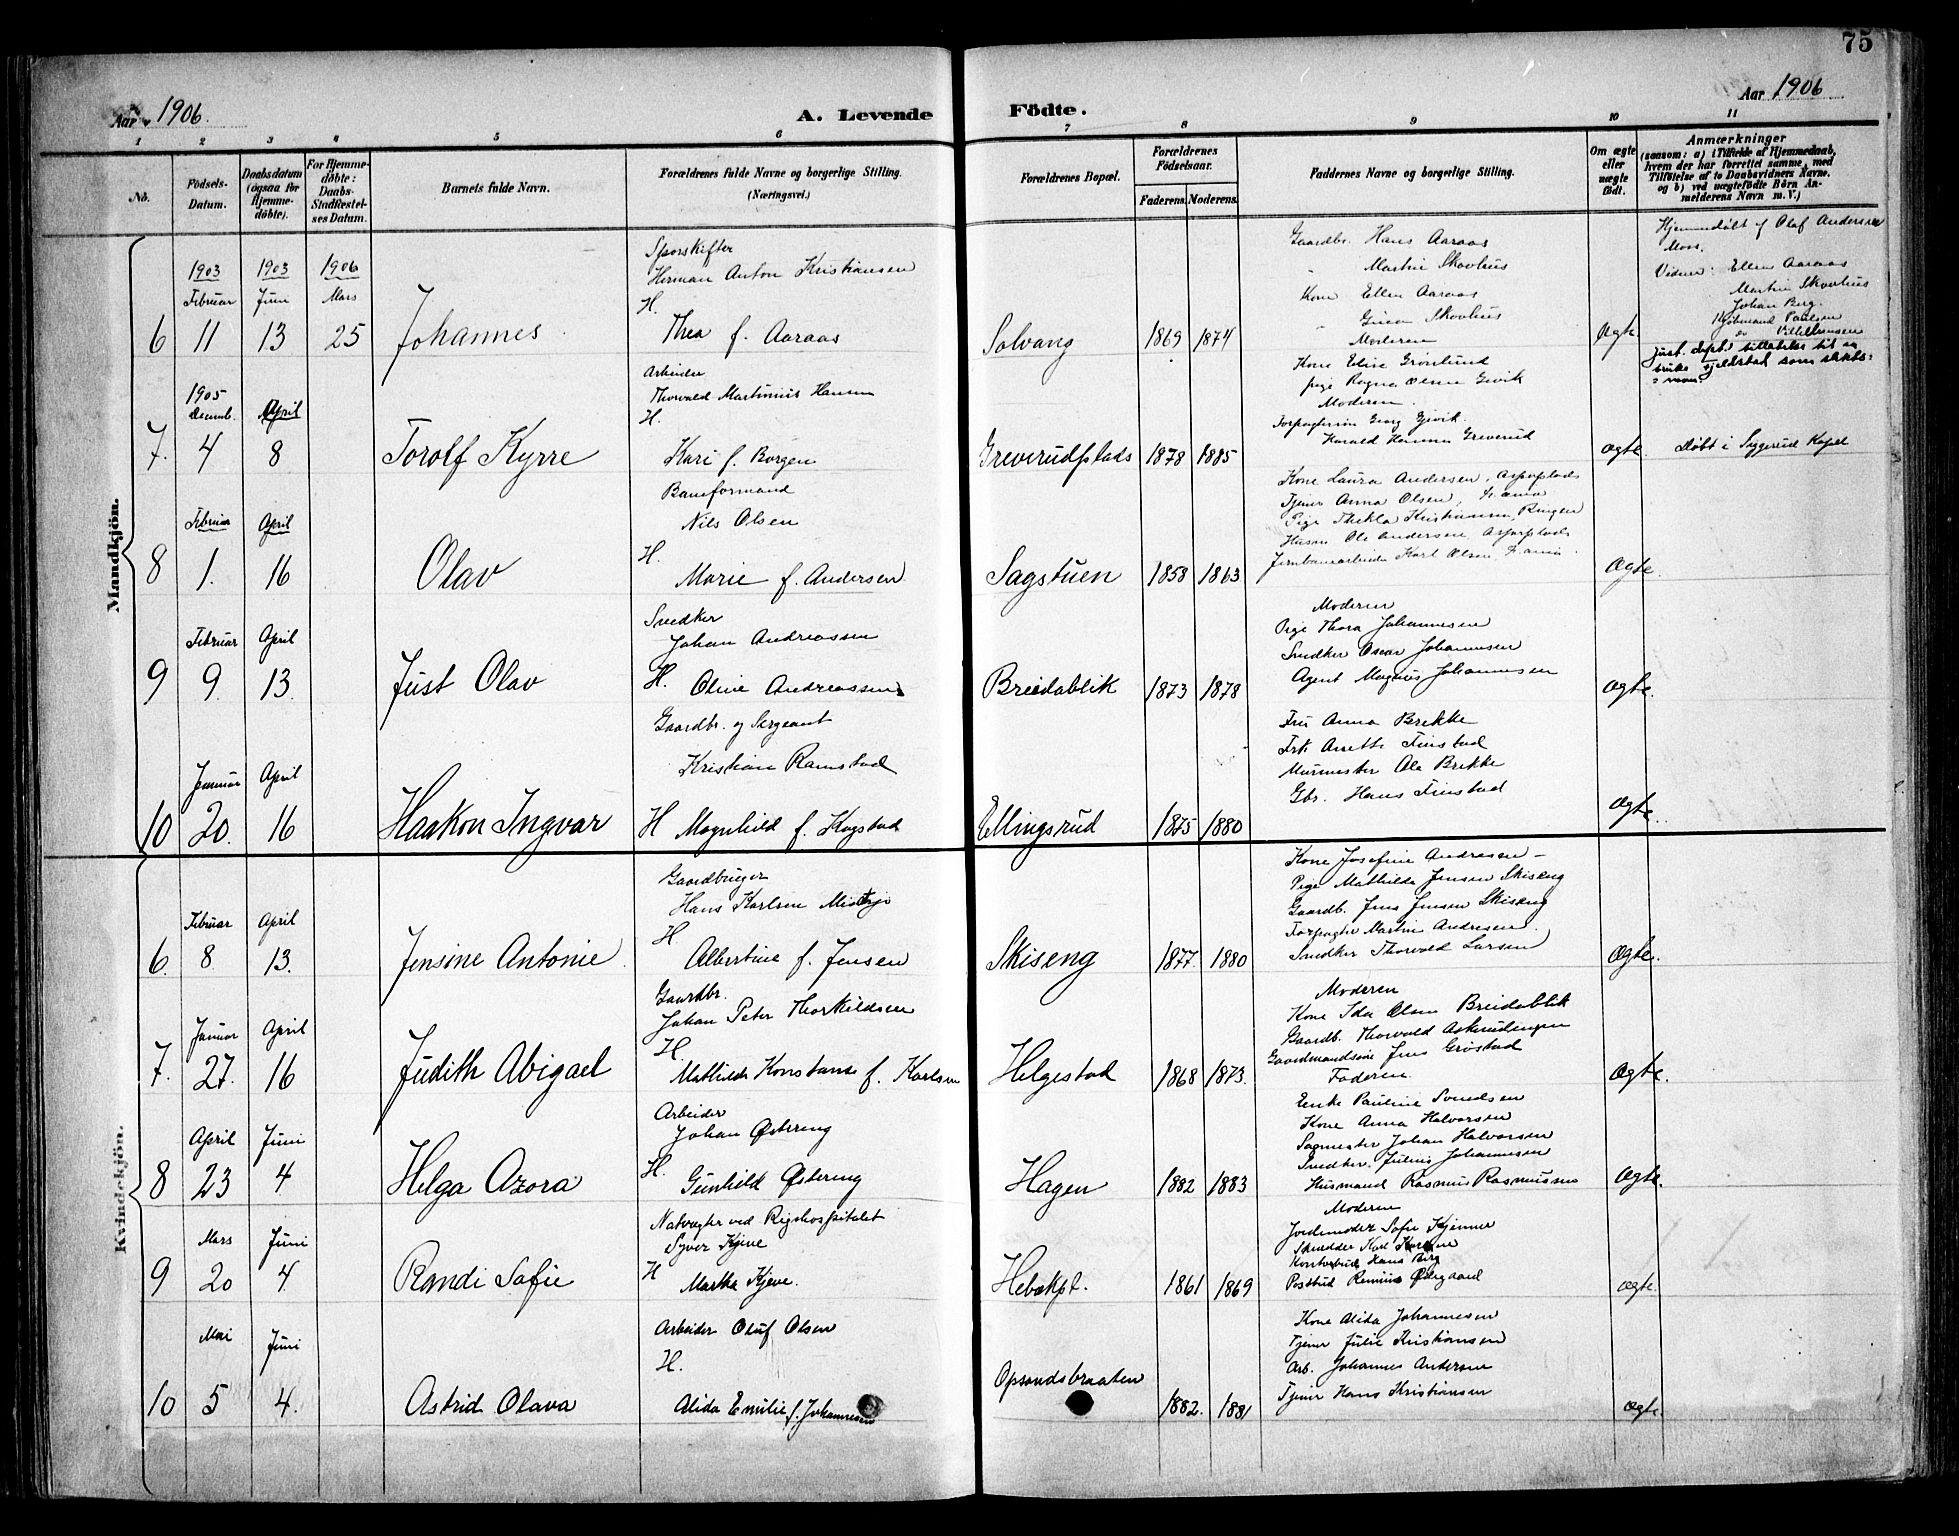 75
Aar 1906.
A. Levende Födte.
Aar 1906
1 2 3 4 5 6 7 8 9 10 11
No.
Födsels-Datum.
Daabsdatum (ogsaa for Hjemme-döbte).
For Hjemme-döbte: Daabs-Stadfæstel-ses Datum.
Barnets fulde Navn.
Forældrenes fulde Navne og borgerlige Stilling. (Næringsvei.)
Forældrenes Bopæl.
Forældrenes Födselsaar.
Faderens. Moderens.
Faddernes Navne og borgerlige Stilling.
Om ægte eller uægte födt.
Anmærkninger
(saasom: a) i Tilfælde af Hjemmedaab,
hvem der har forrettet samme, med
Tilföielse af to Daabsvidners Navne.
og b) ved uægtefödte Börn An-
melderens Navn m. V.)
Mandkjön.
6
1903 Februar 11
1903 Juni 13
1906 Mars 25
Johannes
Herman Anton Kristiansen
H.
Thea f. Aaraas
Solvang
1869 1874
Gaardbr. Hans Aaraas
Martin Skovhus
Kone Ellen Aaraas
Skovhus
Moderen
Ægte
Hjemmedøbt af Olaf Andersen
Moss.
Vidner: Ellen Aaraas
Martin Skovhus
Johan Berg.
7.
1905 Decemb. 4
April 8
Torolf Kyrre
Arbeider
Thorvald Martinius Hansen
H.
Kari f. Borgen
Greverudplads
1878 1885
Kone Elise Grønlund
Moderen.
Harald Hansen Greverud
ægte
Døbt i Kapel
8
Februar 1.
April 16
Olav
Baneformand
Nils Olsen
H.
Marie f. Andersen
Sagstuen
1858 1863
Kone Laura Andersen,
Tjener Anna Olsen,
Pige Thekla Kristiansen,
Jernbanearbeider Karl Olsen,
Ægte.
9
Februar 9.
April 13.
Just Olav
Snedker
Johan Andreassen
H. Oline Andreassen
Breidablik
1873 1878
Moderen
Pige Thora Johannesen
Snedker Oscar Johannesen
Agent Magnus Johannesen
Ægte.
10
Januar 20.
April 16
Haakon Ingvar
Gaardbr. og Sergeant
Kristian Ramstad
H Magnhild f. Kogstad
Ellingsrud
1875 1880
Fru Anna Brekke
Frk. Anette Finstad
Murmester Ole Brekke
Gbr. Hans Finstad
Ægte.
Kvindekjön.
6.
Februar 8
April 13.
Jensine Antonie
Gaardbruger
Hans Karlsen
H
Albertine f. Jensen
Skiseng
1877. 1880
Kone Josefine Andresen
Pige Mathilde Jensen Skiseng
Gaardb. Jens Jensen Skiseng
Forpagter Martin Andresen.
Snedker Thorvald Larsen
Ægte.
7.
Januar 27.
April 16
Judith Abigael
Gaardbr.
Johan Peter Thorkildsen
H.
Mathilde Konstanse f. Karlsen
Helgestad
1868 1873.
Moderen
Kone Ida Olsen Breidablik
Gaardb. Thorvald Askerudengen
Gaardmandssøn Jens Grøstad
Faderen
Ægte.
8
April 23
Juni 4
Helga Azora
Arbeider
Johan Østreng
H.
Gunhild Østreng
Hagen
1882 1883
Enke Pauline Svendsen
Kone Anna Halvorsen
Sagmester Johan Halvorsen
Snedker. Julius Johannesen
Husmand Rasmus Rasmussen
Ægte.
9
Mars 20
Juni 4.
Randi Sofie
Natvagter ved Rigshospitalet
Syver Kjeve
H
Martha Kjeve.
Hebækpl.
1861 1869
Moderen
Jordemoder Sofie Kjenner
Kontorbud Hans Berg
Postbud Østgaard
ægte.
10
Mai 5
Juni 4.
Astrid Olava
Arbeider Oluf Olsen
H.
Alida Emilie f. Johannesen
Opsandsbraaten
1882. 1881
Kone Alida Johannesen
Tjener Julie Kristiansen
Arb. Johannes Andersen
Tjener Hans Kristiansen
ægte.